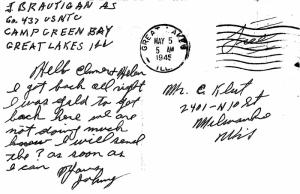 J BRAUTIGAN AS
Co. 437 USNTC
CAMP GREEN BAY
GREAT LAKES ILL
GREAT LAKES
MAY 5
5 AM
1945
ILL.
Free
Hello Elmer & Helen
I got back all right
I was glad to get
back here we are
not doing much
know I will send
the ? as soon as
I can
Johnny
Mr. C Klut
2401-N 10 St
Milwaukee
Wis